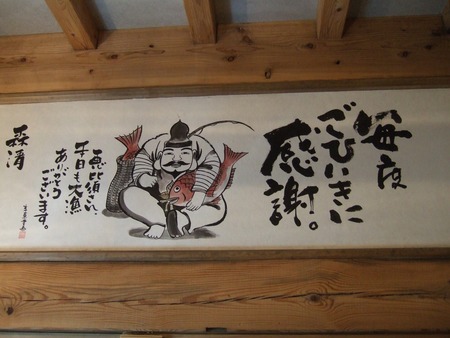 毎度
ごひいきに
感謝。
恵比須さん、
本日も大漁
ありがとう
ございます。
森清